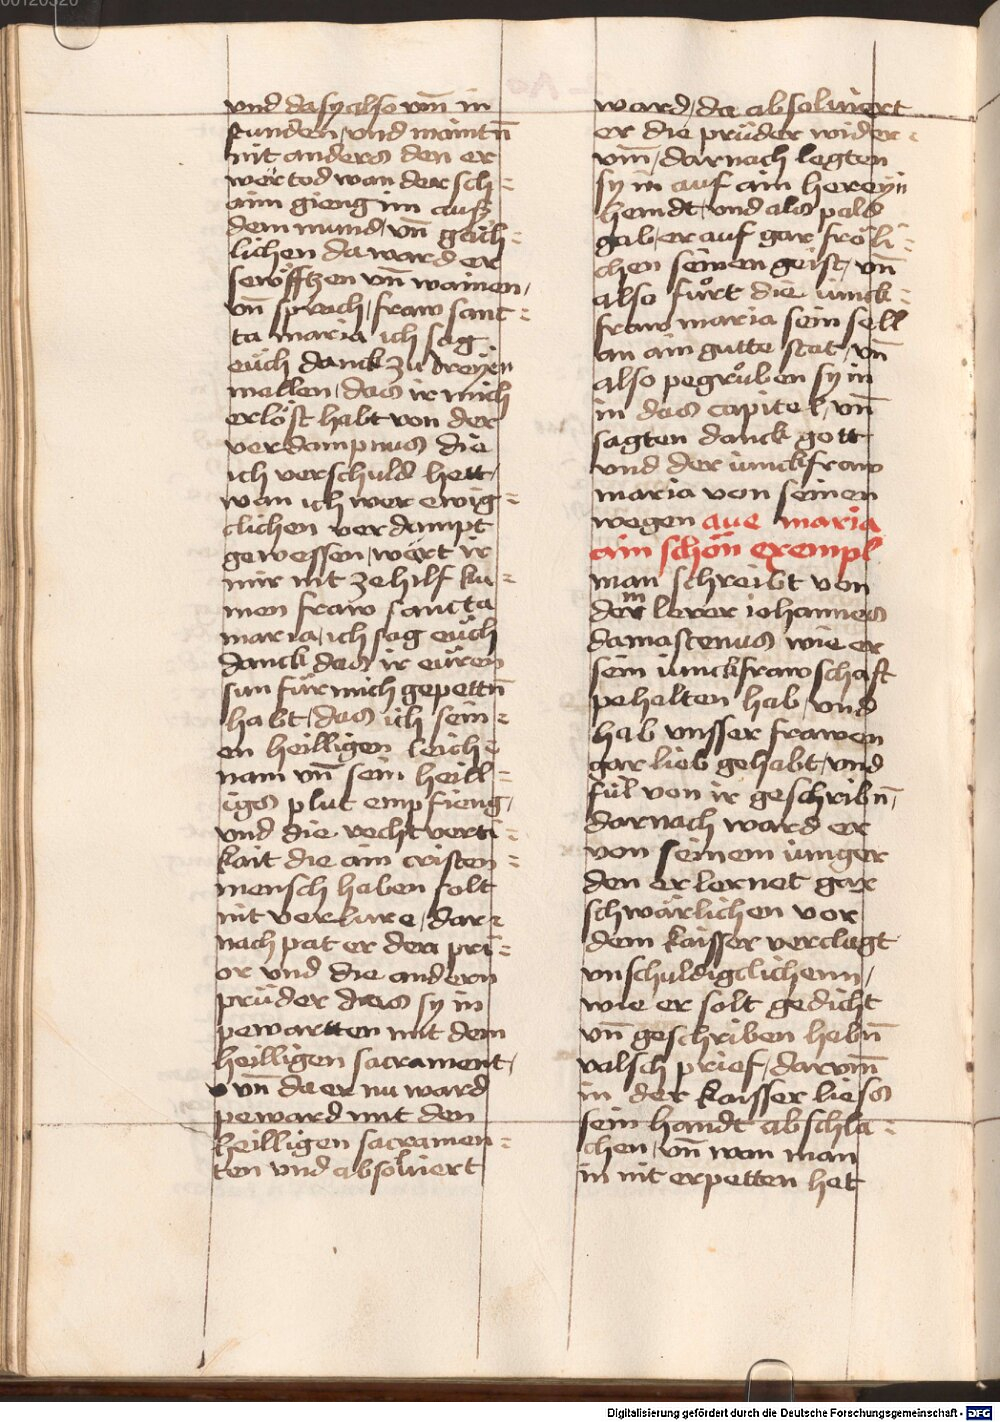 und da sy also vm̄ in
stunden / und maintn̄
nit anders den er
wer tod wan der sch=
aim gieng im auß
dem mund / vn̄ gäch=
lichen da ward er
sewfftzen vn̄ wainen /
vn̄ sprach / fraw sanc=
ta maria ich sag
eüch danck zu dreyen
mallen / das ir mich
erlöst habt von der
verdampnus die
ich verschuld hett /
wan ich wer ewig=
clichen verdampt
gewessen / wërt ir
mir nit ze hilf ku=
men fraw sancta
maria / ich sag eüch
danck das ir eüren
sun für mich gepettn̄
habt / das ich sein=
en heilligen leich=
nam vn̄ sein heill=
igs plut empfieng /
vnd die rechtverti=
kait die ain cristen=
mensch haben solt
nit verlure / dar=
nach pat er den pri=
or vnd die andern
prüder das sy in
pewartten mit dem
heilligen sacrament /
vn̄ da er nu ward
peward mit den
heilligen sacramen=
ten vnd absoluiert
ward / da absoluiert
er die prüder wider=
vm̄ / darnach legten
sy in auf ain hereyn
hemdt / vnd als pald
gab er auf gar fröli=
chen seinen geist / vn̄
also fůrt die iunck=
fraw maria sein sell
an ain gutte stat / vn̄
also pegrůben sy in
in das capitel / vn̄
sagten danck gott
vnd der iunckfraw
maria von seinen
wegen aue maria
ain schön exempl
man schreibt von
dem lerer iohannes
damascenus wie er
sein iunckfrawschaft
pehalten hab / vnd
hab vnsser frawen
gar lieb gehabt / vnd
fil von ir geschribn̄ /
darnach ward er
von seinem iunger
den er lernet gar
schwärlichen vor
dem kaisser verclagt
vnschuldigclichenn /
wie er solt gedicht
vn̄ geschriben habn̄
valsch prief / darvm̄
in der kaisser liess
sein handt abschla=
chen / vn̄ wan man
in nit erpetten het
Digitalisierung gefördert durch die Deutsche Forschungsgemeinschaft - DFG